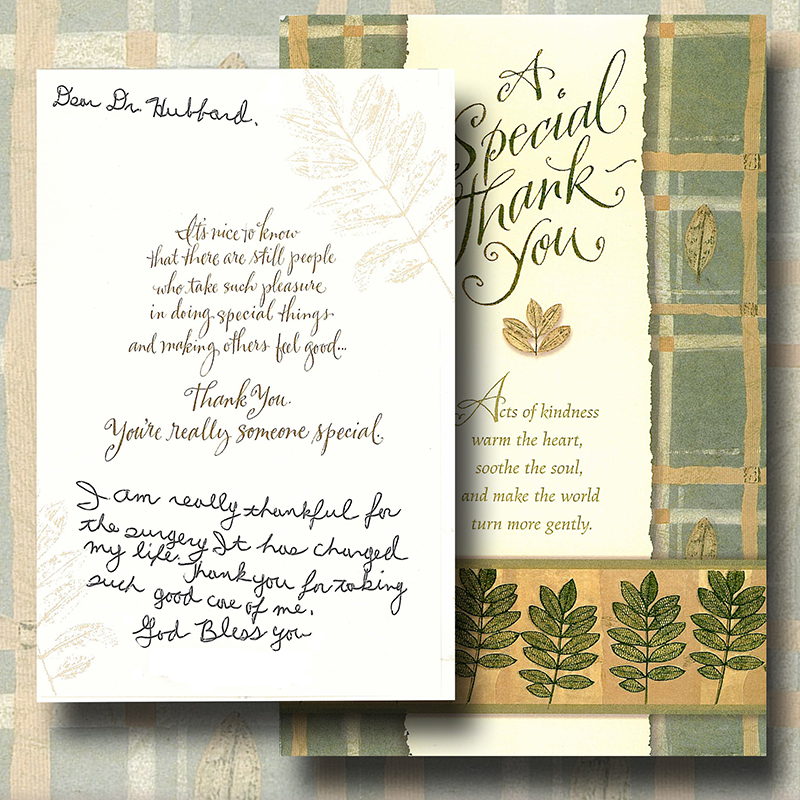 Dear Dr. Hubbard,
It's nice to know
that there are still people
who take such pleasure
in doing special things
and making others feel good...
Thank You.
You're really someone special.
I am really thankful for
the surgery It has changed
my life. Thank you for taking
such good care of me.
God Bless you
A
Special
Thank-
you
Acts of kindness
warm the heart,
soothe the soul,
and make the world
turn more gently.